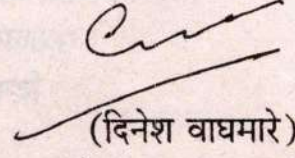 (दिनेश वाघमारे)